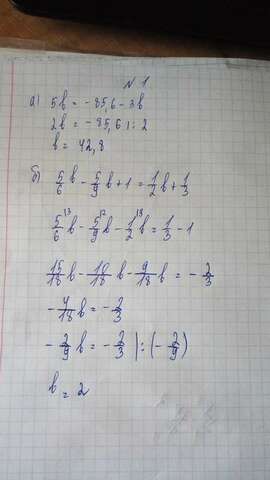 N 1
а) 5b = -85,6 - 3b
2b = -85,6 | : 2
b = 42,8
б) 5/6 b - 5/9 b + 1 = 1/2 b + 1/3
5/6 b - 5/9 b - 1/2 b = 1/3 - 1
15/18 b - 10/18 b - 9/18 b = - 2/3
- 4/18 b = - 2/3
- 2/9 b = - 2/3 | : (- 2/9)
b = 2